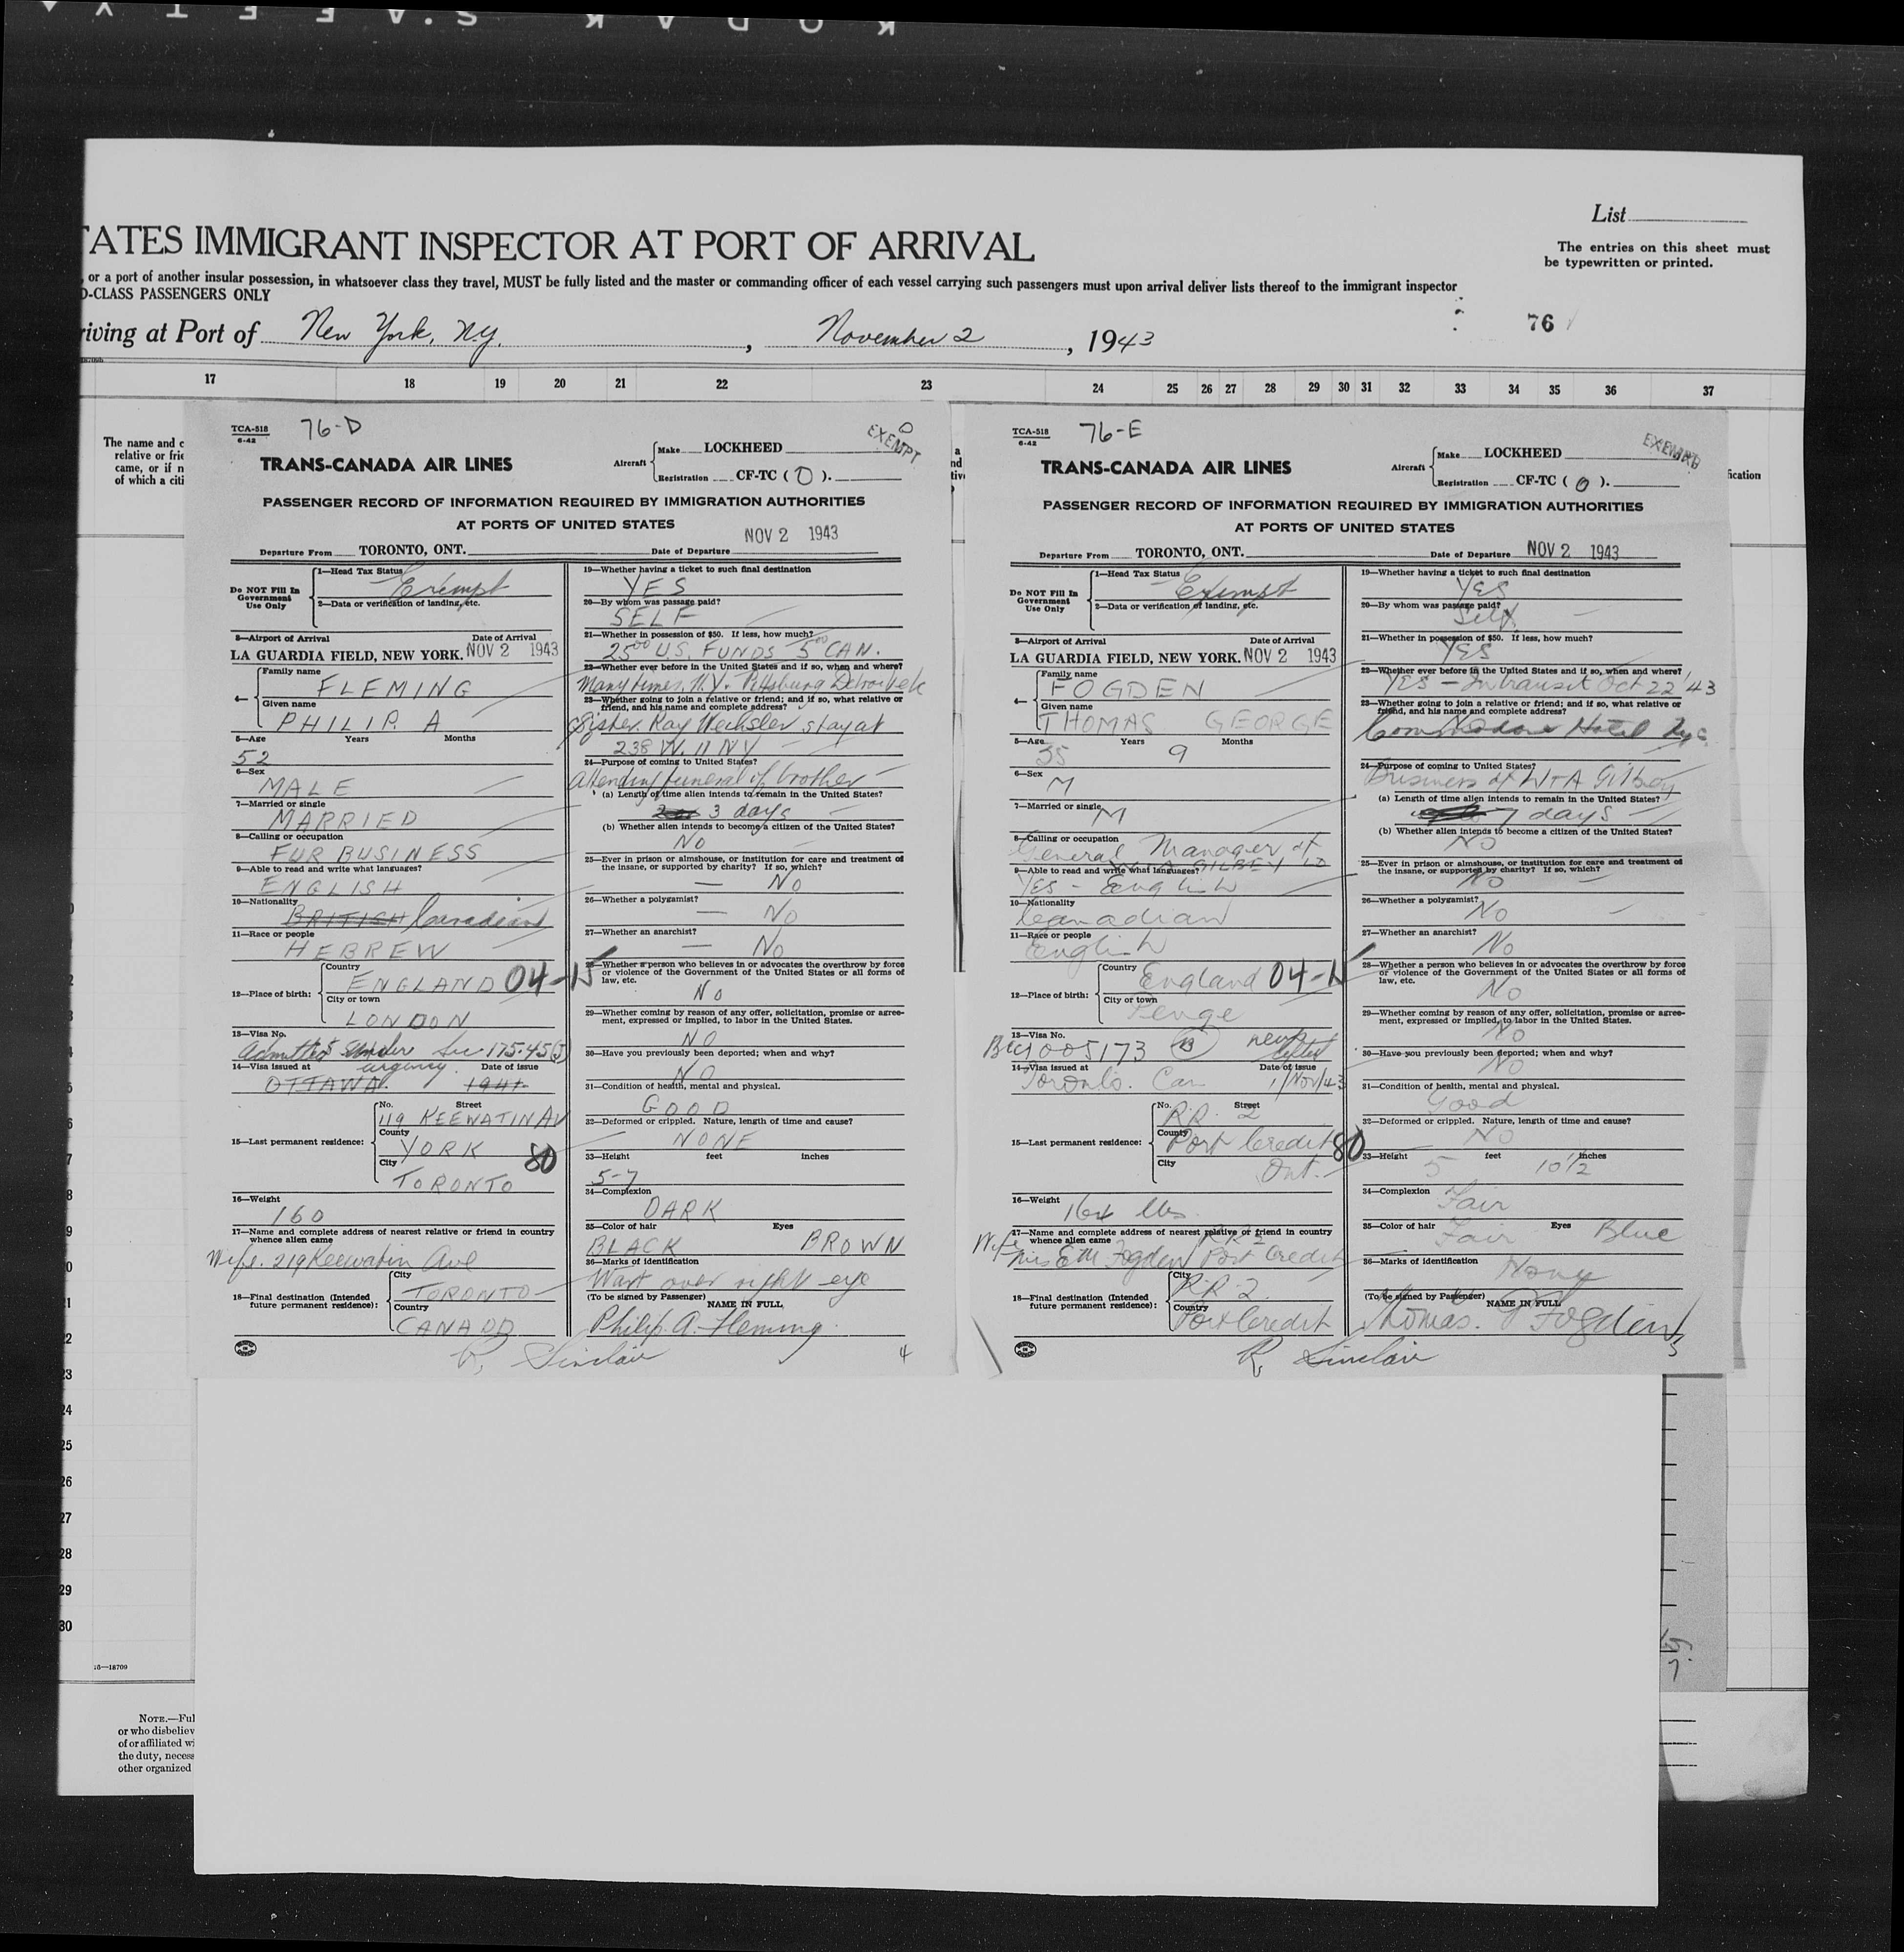 KODAK SAFETY
List
TATES IMMIGRANT INSPECTOR AT PORT OF ARRIVAL
The entries on this sheet must
be typewritten or printed.
, or a port of another insular possession, in whatsoever class they travel, MUST be fully listed and the master or commanding officer of each vessel carrying such passengers must upon arrival deliver lists thereof to the immigrant inspector
D-CLASS PASSENGERS ONLY
riving at Port of New York, N.Y. , November 2 , 1943
76
17 18 19 20 21 22 23 24 25 26 27 28 29 30 31 32 33 34 35 36 37
The name and c
relative or frie
came, or if n
of which a citi
TCA-518
6-42
76-D
EXEMPT
TRANS-CANADA AIR LINES
Aircraft
Make LOCKHEED
Registration CF-TC (O).
PASSENGER RECORD OF INFORMATION REQUIRED BY IMMIGRATION AUTHORITIES
AT PORTS OF UNITED STATES
NOV 2 1943
Departure From TORONTO, ONT. Date of Departure
Do NOT Fill In
Government
Use Only
1—Head Tax Status Exempt
2—Data or verification of landing, etc.
3—Airport of Arrival Date of Arrival
LA GUARDIA FIELD, NEW YORK. NOV 2 1943
4—
Family name
FLEMING
Given name
PHILIP. A
5—Age Years Months
52
6—Sex
MALE
7—Married or single
MARRIED
8—Calling or occupation
FUR BUSINESS
9—Able to read and write what languages?
ENGLISH
10—Nationality
BRITISH Canadian
11—Race or people
HEBREW
12—Place of birth:
Country
ENGLAND 04-15
City or town
LONDON
13—Visa No.
Admitted under Sec 175.45(J)
urgency.
14—Visa issued at Date of issue
OTTAWA. 1941.
15—Last permanent residence:
No. Street
119 KEEWATIN AV
County
YORK
80
City
TORONTO
16—Weight
160
17—Name and complete address of nearest relative or friend in country
whence alien came
Wife. 219 Keewatin Ave
18—Final destination (Intended
future permanent residence):
City
TORONTO
Country
CANADA
19—Whether having a ticket to such final destination
YES
20—By whom was passage paid?
SELF
21—Whether in possession of $50. If less, how much?
25.00 U.S. FUNDS 5.00 CAN.
22—Whether ever before in the United States and if so, when and where?
Many times. N.Y. Pittsburg Detroit etc
23—Whether going to join a relative or friend; and if so, what relative or
friend, and his name and complete address?
Sister. Ray Wechsler. stay at
238 W. 11 NY
24—Purpose of coming to United States?
attending funeral of brother
(a) Length of time alien intends to remain in the United States?
3 days
(b) Whether alien intends to become a citizen of the United States?
NO
25—Ever in prison or almshouse, or institution for care and treatment of
the insane, or supported by charity? If so, which?
— NO
26—Whether a polygamist?
— NO
27—Whether an anarchist?
— NO
28—Whether a person who believes in or advocates the overthrow by force
or violence of the Government of the United States or all forms of
law, etc.
NO
29—Whether coming by reason of any offer, solicitation, promise or agree-
ment, expressed or implied, to labor in the United States.
NO
30—Have you previously been deported; when and why?
NO
31—Condition of health, mental and physical.
GOOD
32—Deformed or crippled. Nature, length of time and cause?
NONE
33—Height feet inches
5-7
34—Complexion
DARK
35—Color of hair Eyes
BLACK BROWN
36—Marks of identification
Wart over right eye
(To be signed by Passenger)
NAME IN FULL
Philip. A. Fleming.
R. Sinclair
4
TCA-518
6-42
76-E
EXEMPT
TRANS-CANADA AIR LINES
Aircraft
Make LOCKHEED
Registration CF-TC (O).
ication
PASSENGER RECORD OF INFORMATION REQUIRED BY IMMIGRATION AUTHORITIES
AT PORTS OF UNITED STATES
Departure From TORONTO, ONT. Date of Departure NOV 2 1943
Do NOT Fill In
Government
Use Only
1—Head Tax Status
Exempt
2—Data or verification of landing, etc.
3—Airport of Arrival Date of Arrival
LA GUARDIA FIELD, NEW YORK. NOV 2 1943
4—
Family name
FOGDEN
Given name
THOMAS GEORGE
5—Age Years Months
35 9
6—Sex
M
7—Married or single
M
8—Calling or occupation
General Manager of
GILBEY LD
9—Able to read and write what languages?
YES - English
10—Nationality
Canadian
11—Race or people
English
12—Place of birth:
Country
England 04-15
City or town
Penge
13—Visa No.
1005173 B
14—Visa issued at Date of issue
Toronto. Can 1/Nov/43
15—Last permanent residence:
No. Street
R.R. 2
County
Port Credit
80
City
Ont.
16—Weight
164 lbs.
17—Name and complete address of nearest relative or friend in country
whence alien came
R R 2
Wife Mrs E.M. Fogden Port Credit
18—Final destination (Intended
future permanent residence):
City
R.R. 2.
Country
Port Credit
19—Whether having a ticket to such final destination
YES
20—By whom was passage paid?
Self.
21—Whether in possession of $50. If less, how much?
YES
22—Whether ever before in the United States and if so, when and where?
YES - In transit Oct 22 '43
23—Whether going to join a relative or friend; and if so, what relative or
friend, and his name and complete address?
No
Commodore Hotel Nyc.
24—Purpose of coming to United States?
Business of W & A Gilbey
(a) Length of time alien intends to remain in the United States?
7 days
(b) Whether alien intends to become a citizen of the United States?
NO
25—Ever in prison or almshouse, or institution for care and treatment of
the insane, or supported by charity? If so, which?
No
26—Whether a polygamist?
No
27—Whether an anarchist?
No
28—Whether a person who believes in or advocates the overthrow by force
or violence of the Government of the United States or all forms of
law, etc.
No
29—Whether coming by reason of any offer, solicitation, promise or agree-
ment, expressed or implied, to labor in the United States.
No
30—Have you previously been deported; when and why?
No
31—Condition of health, mental and physical.
Good
32—Deformed or crippled. Nature, length of time and cause?
No
33—Height feet inches
5 10 1/2
34—Complexion
Fair
35—Color of hair Eyes
Fair Blue
36—Marks of identification
None
(To be signed by Passenger)
NAME IN FULL
Thomas. G Fogden
R. Sinclair
3
23
24
25
26
27
28
29
30
16—18709
NOTE.—Ful
or who disbeliev
of or affiliated wi
the duty, necess
other organized